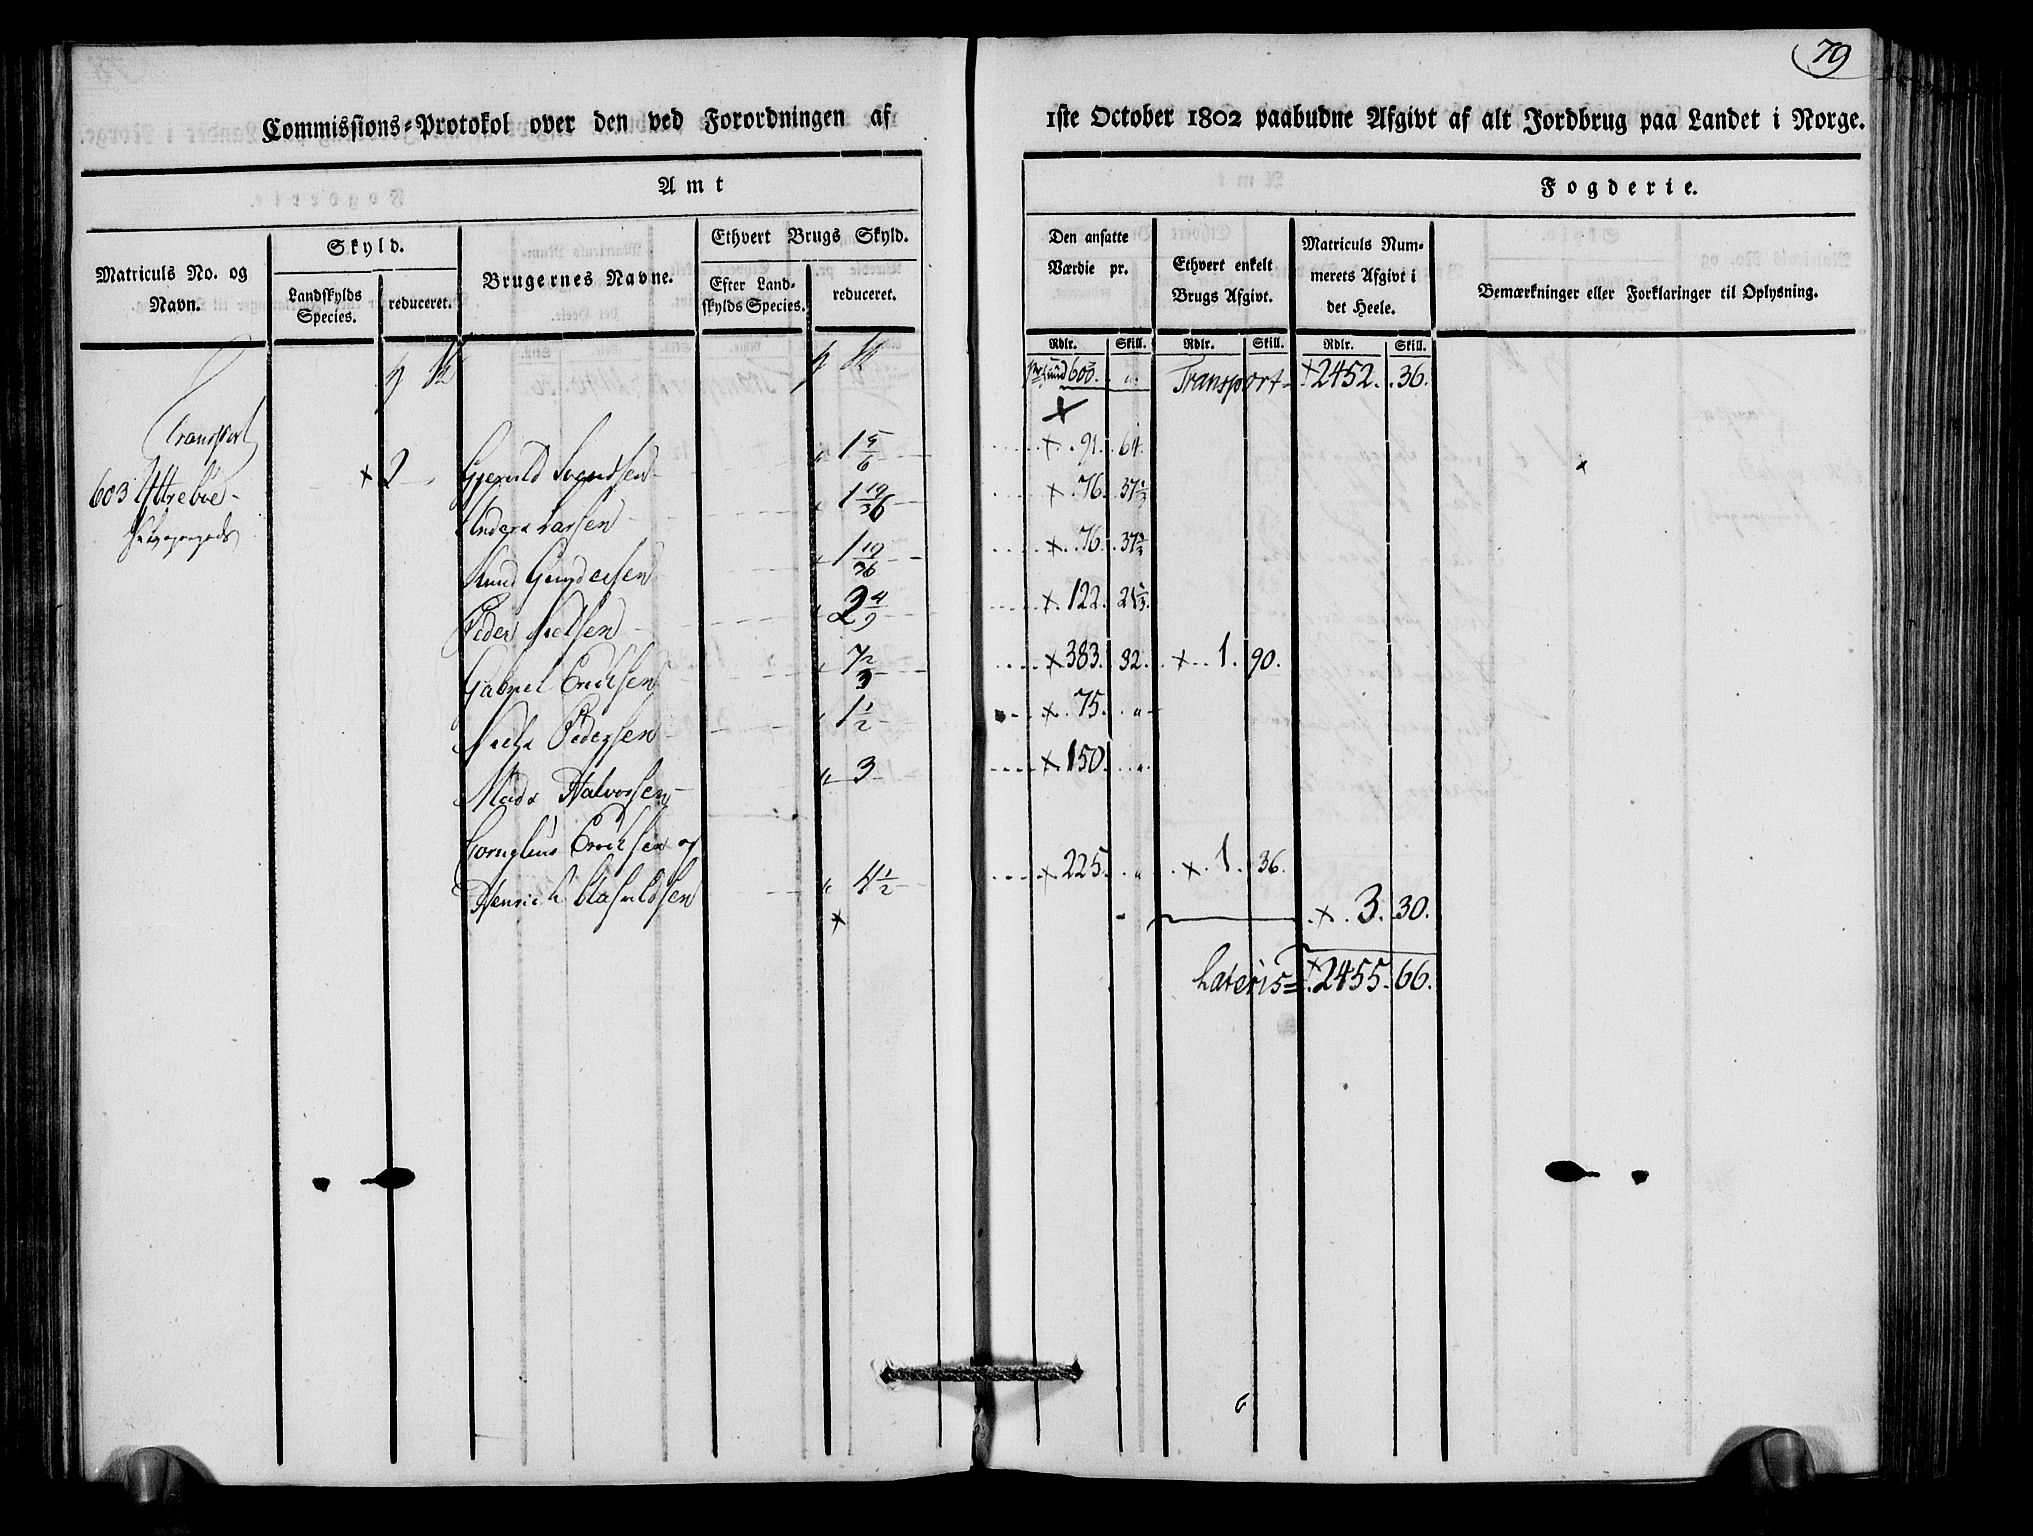 79
Commissions-Protokol over den ved Forordningen af 1ste October 1802 paabudne Afgivt af alt Jordbrug paa Landet i Norge.
Amt Fogderie.
Matriculs No. og Navn.
Skyld.
Landskylds Species.
reduceret.
Brugernes Navne.
Ethvert Brugs Skyld.
Efter Landskylds Species.
reduceret.
Den ansatte Værdie pr.
Ethvert enkelt Brugs Afgivt.
Matriculs Nummerets Afgivt i det Heele.
Bemærkninger eller Forklaringer til Oplysning.
Rdlr. Skill. Rdlr. Skill. Rdlr. Skill.
600. " Transport 2452. 36.
Transport
603 Yttrebøe 2 Gjeruld Svendsen " 1 5/6 91. 64.
Anders Larsen " 1 19/36 76. 37 1/3
Knud Gundersen " 1 19/36 76. 37 1/3
Peder Nielsen " 2 4/9 122. 21 1/3.
Gabriel Erichsen " 7 2/3 383. 32. 1. 90.
Niels Pedersen " 1 1/2 75. "
Mads Halvorsen " 3 150. "
Cornelius Erichsen og
Henrich " 4 1/2 225. " 1. 36.
3. 30.
Lateris 2455. 66.